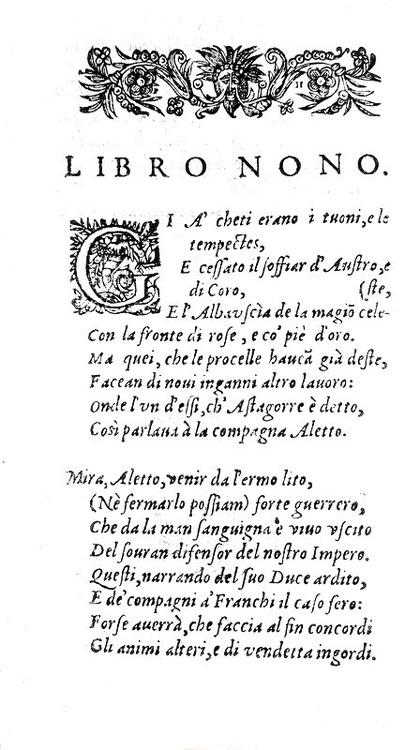 LIBRO NONO.
GIA' cheti erano i tuoni, e le
tempestes,
E cessato il soffiar d'Austro, e
di Coro, (ste,
E l'Alba vscìa de la magiō cele-
Con la fronte di rose, e co' piè d'oro.
Ma quei, che le procelle haueā già deste,
Facean di noui inganni altro lauoro:
Onde l'vn d'essi, ch'Astagorre è detto,
Così parlaua à la compagna Aletto.
Mira, Aletto, venir da l'ermo lito,
(Nè fermarlo possiam) forte guerrero,
Che da la man sanguigna è viuo vscito
Del souran difensor del nostro Impero.
Questi, narrando del suo Duce ardito,
E de' compagni a' Franchi il caso fero:
Forse auerrà, che faccia al fin concordi
Gli animi alteri, e di vendetta ingordi.